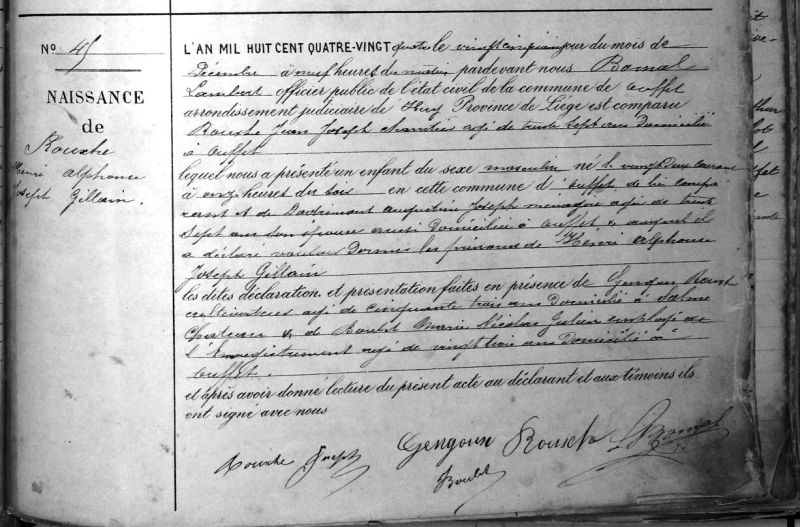 N° 45
NAISSANCE
de
Rouxhe
Henri Alphonse
Joseph Gillain.
L'AN MIL HUIT CENT QUATRE-VINGT quatre le vingt cinquième jour du mois de
Décembre à neuf heures du matin pardevant nous Bomal
Lambert officier public de l'état civil de la commune de Ouffet
arrondissement judiciaire de Huy Province de Liège est comparu
Rouxhe Jean Joseph agé de trente sept ans Domicilié
à Ouffet
lequel nous a présenté un enfant du sexe masculin né le vingt deux courant
à onze heures du soir en cette commune d'Ouffet de lui compa
rant et de Augustine Joseph menagère agé de trente
sept ans son épouse aussi Domicilié à Ouffet & auquel il
a déclaré vouloir Donner les prénoms de Henri Alphonse
Joseph Gillain
les dites déclaration et présentation faites en présence de Gengoux Rouxh
cultivateur agé de cinquante trois ans Domicilié à Salme
Château & de Boulet Marie Nicolas Julien employé de
l'Enregistrement agé de vingt trois ans Domicilié à
Ouffet.
et après avoir donné lecture du présent acte au déclarant et aux témoins ils
ont signé avec nous
Rouxhe Joseph Gengoux Rouxh L Bomal
Boulet